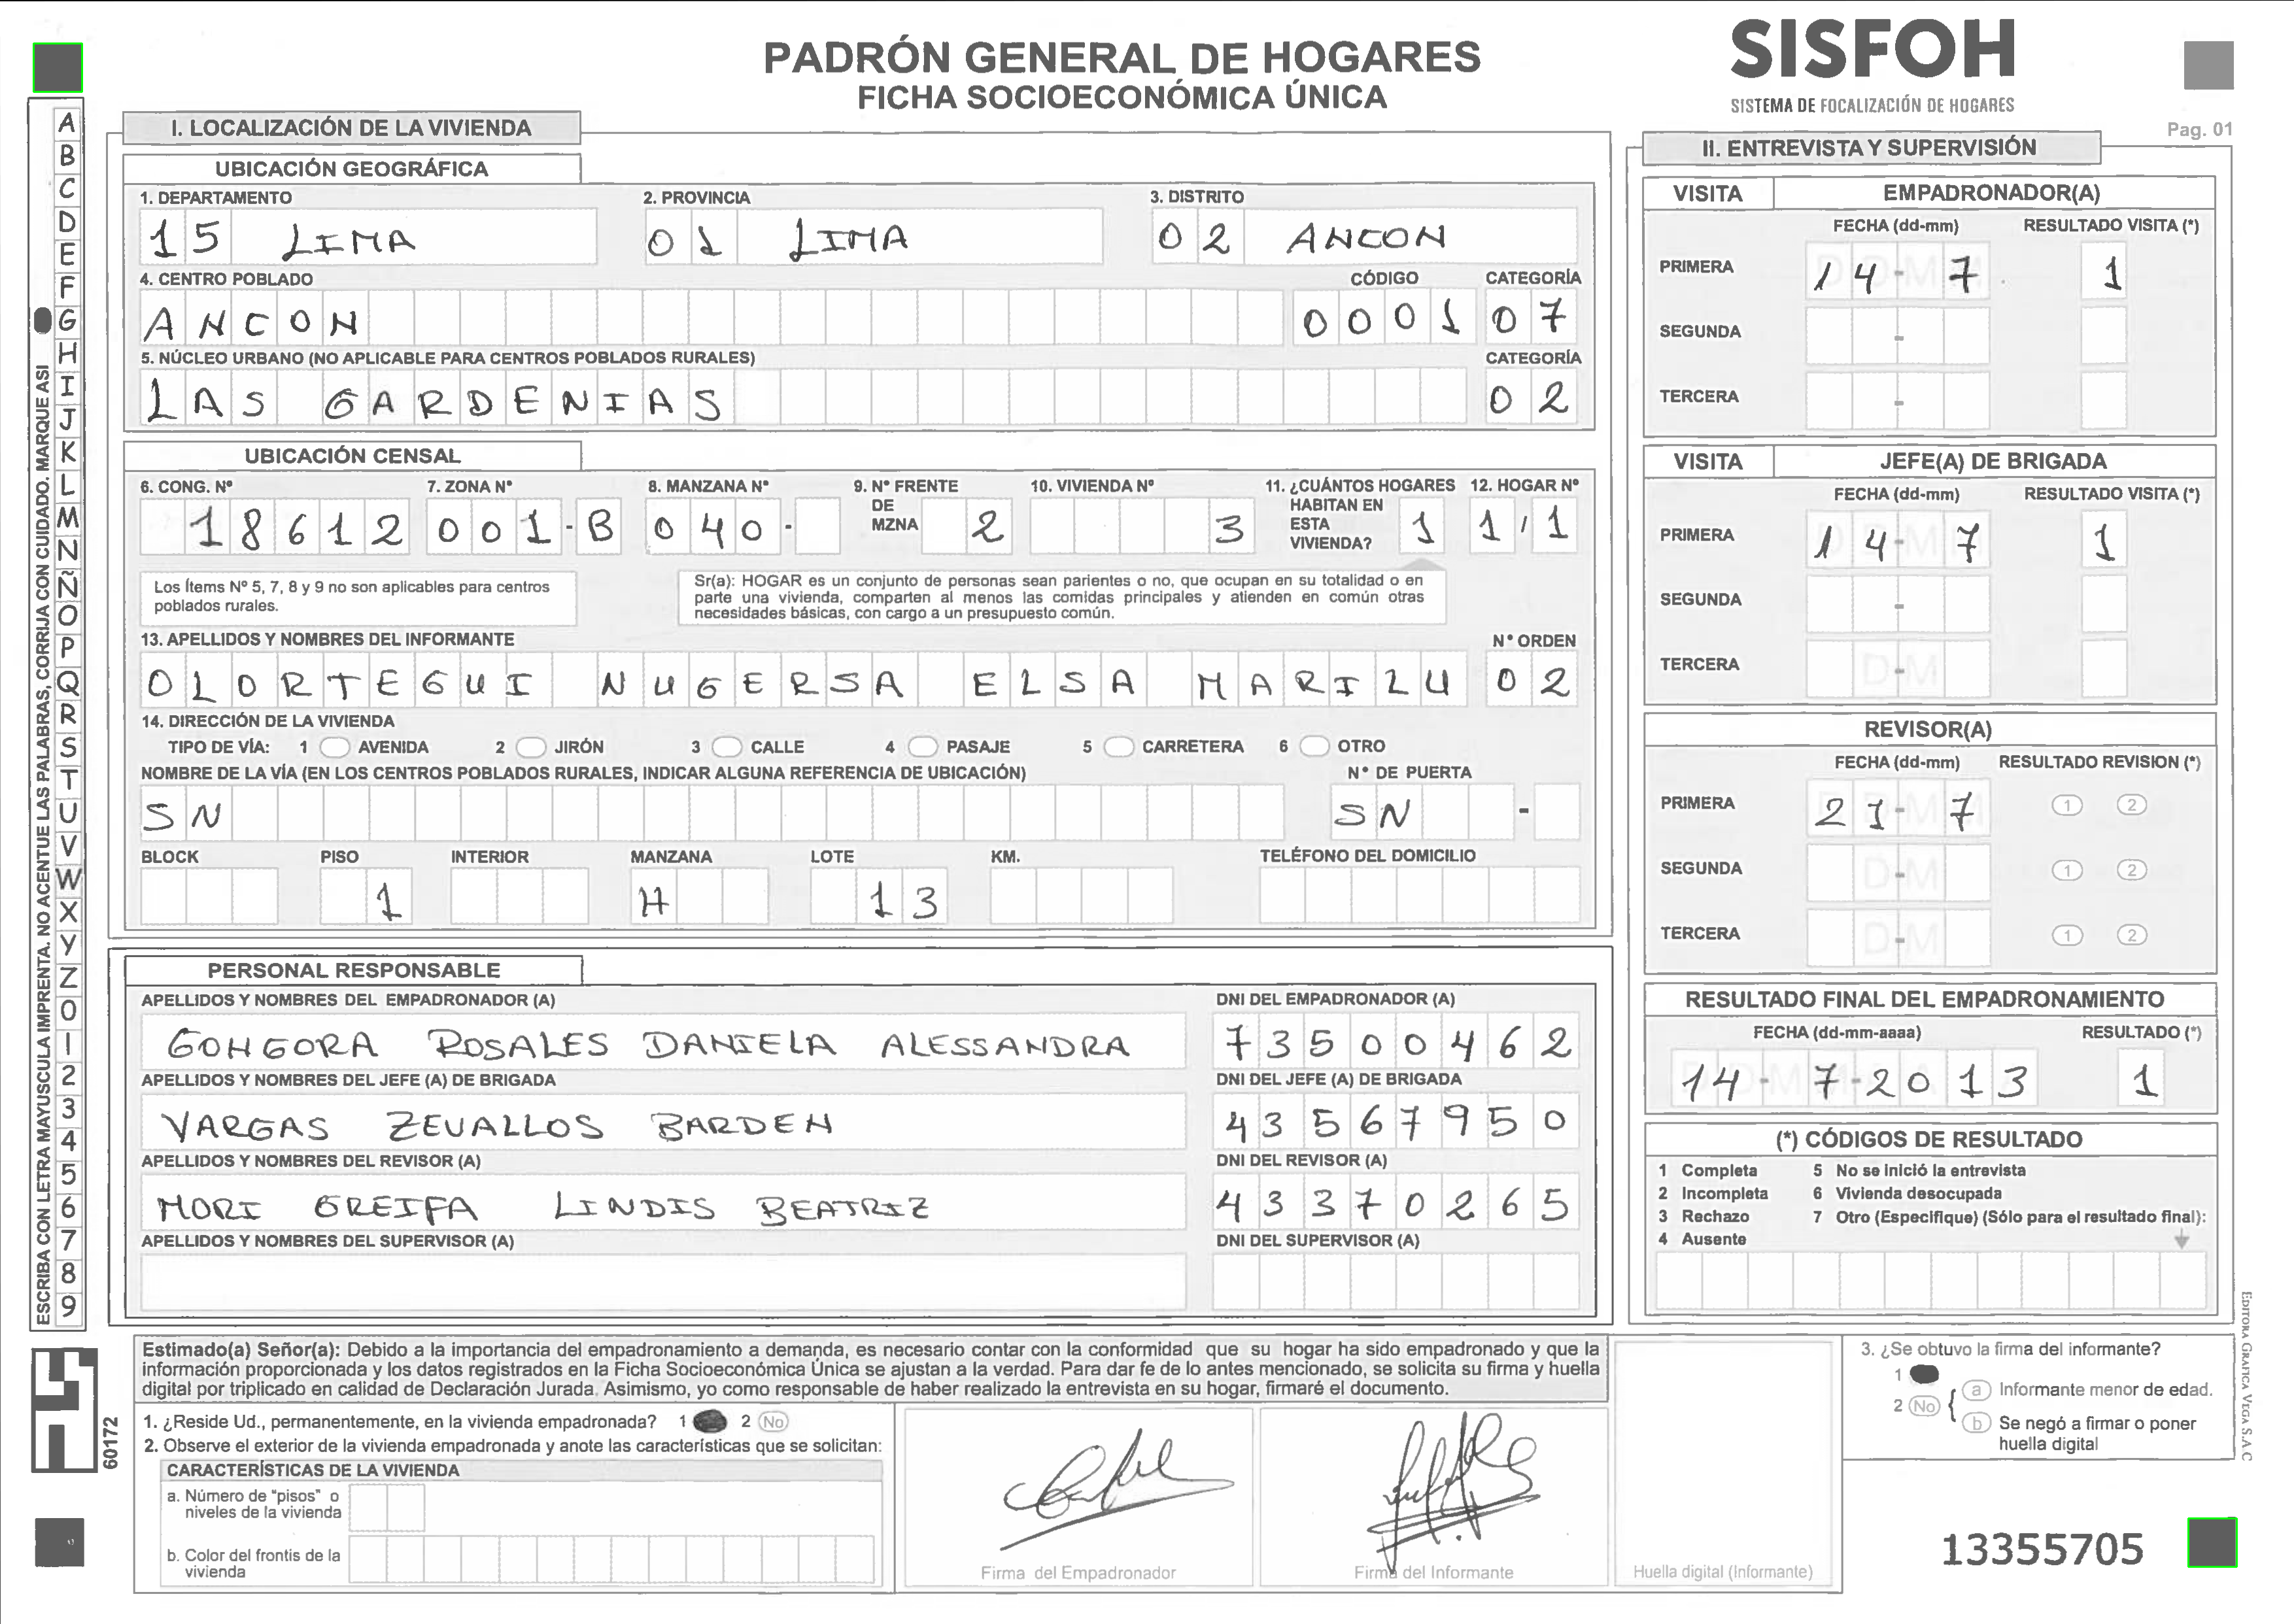 PADRÓN GENERAL DE HOGARES
FICHA SOCIOECONÓMICA ÚNICA
SISFOH
SISTEMA DE FOCALIZACIÓN DE HOGARES
Pag. 01
ESCRIBA CON LETRA MAYUSCULA IMPRENTA. NO ACENTUE LAS PALABRAS, CORRIJA CON CUIDADO. MARQUE ASI
A
B
C
D
E
F
G
H
I
J
K
L
M
N
Ñ
O
P
Q
R
S
T
U
V
W
X
Y
Z
0
1
2
3
4
5
6
7
8
9
I. LOCALIZACIÓN DE LA VIVIENDA
UBICACIÓN GEOGRÁFICA
1. DEPARTAMENTO 2. PROVINCIA 3. DISTRITO
15 LIMA 01 LIMA 02 ANCON
4. CENTRO POBLADO CÓDIGO CATEGORÍA
ANCON 0001 07
5. NÚCLEO URBANO (NO APLICABLE PARA CENTROS POBLADOS RURALES) CATEGORÍA
LAS GARDENIAS 02
UBICACIÓN CENSAL
6. CONG. Nº 7. ZONA Nº 8. MANZANA Nº 9. Nº FRENTE DE MZNA 10. VIVIENDA Nº 11. ¿CUÁNTOS HOGARES HABITAN EN ESTA VIVIENDA? 12. HOGAR Nº
18612 001-B 040- 2 3 1 1/1
Los Ítems Nº 5, 7, 8 y 9 no son aplicables para centros
poblados rurales.
Sr(a): HOGAR es un conjunto de personas sean parientes o no, que ocupan en su totalidad o en
parte una vivienda, comparten al menos las comidas principales y atienden en común otras
necesidades básicas, con cargo a un presupuesto común.
13. APELLIDOS Y NOMBRES DEL INFORMANTE Nº ORDEN
OLORTEGUI NUGERSA ELSA MARILU 02
14. DIRECCIÓN DE LA VIVIENDA
TIPO DE VÍA: 1 AVENIDA 2 JIRÓN 3 CALLE 4 PASAJE 5 CARRETERA 6 OTRO
NOMBRE DE LA VÍA (EN LOS CENTROS POBLADOS RURALES, INDICAR ALGUNA REFERENCIA DE UBICACIÓN) Nº DE PUERTA
SN SN -
BLOCK PISO INTERIOR MANZANA LOTE KM. TELÉFONO DEL DOMICILIO
1 H 13
PERSONAL RESPONSABLE
APELLIDOS Y NOMBRES DEL EMPADRONADOR (A) DNI DEL EMPADRONADOR (A)
GONGORA ROSALES DANIELA ALESSANDRA 73500462
APELLIDOS Y NOMBRES DEL JEFE (A) DE BRIGADA DNI DEL JEFE (A) DE BRIGADA
VARGAS ZEVALLOS BARDEN 43567950
APELLIDOS Y NOMBRES DEL REVISOR (A) DNI DEL REVISOR (A)
MORI GREIFA LINDIS BEATRIZ 43370265
APELLIDOS Y NOMBRES DEL SUPERVISOR (A) DNI DEL SUPERVISOR (A)
II. ENTREVISTA Y SUPERVISIÓN
VISITA EMPADRONADOR(A)
FECHA (dd-mm) RESULTADO VISITA (*)
PRIMERA 14-7 1
SEGUNDA -
TERCERA -
VISITA JEFE(A) DE BRIGADA
FECHA (dd-mm) RESULTADO VISITA (*)
PRIMERA 14-7 1
SEGUNDA -
TERCERA D-M
REVISOR(A)
FECHA (dd-mm) RESULTADO REVISION (*)
PRIMERA 21-7 1 2
SEGUNDA D-M 1 2
TERCERA D-M 1 2
RESULTADO FINAL DEL EMPADRONAMIENTO
FECHA (dd-mm-aaaa) RESULTADO (*)
14-7-2013 1
(*) CÓDIGOS DE RESULTADO
1 Completa 5 No se inició la entrevista
2 Incompleta 6 Vivienda desocupada
3 Rechazo 7 Otro (Especifique) (Sólo para el resultado final):
4 Ausente
Estimado(a) Señor(a): Debido a la importancia del empadronamiento a demanda, es necesario contar con la conformidad que su hogar ha sido empadronado y que la
información proporcionada y los datos registrados en la Ficha Socioeconómica Única se ajustan a la verdad. Para dar fe de lo antes mencionado, se solicita su firma y huella
digital por triplicado en calidad de Declaración Jurada. Asimismo, yo como responsable de haber realizado la entrevista en su hogar, firmaré el documento.
1. ¿Reside Ud., permanentemente, en la vivienda empadronada? 1 2 No
2. Observe el exterior de la vivienda empadronada y anote las características que se solicitan:
CARACTERÍSTICAS DE LA VIVIENDA
a. Número de "pisos" o
niveles de la vivienda
b. Color del frontis de la
vivienda
Firma del Empadronador
Firma del Informante
Huella digital (Informante)
3. ¿Se obtuvo la firma del informante?
1
2 No { a Informante menor de edad.
b Se negó a firmar o poner
huella digital
60172
13355705
EDITORA GRAFICA VEGA S.A.C